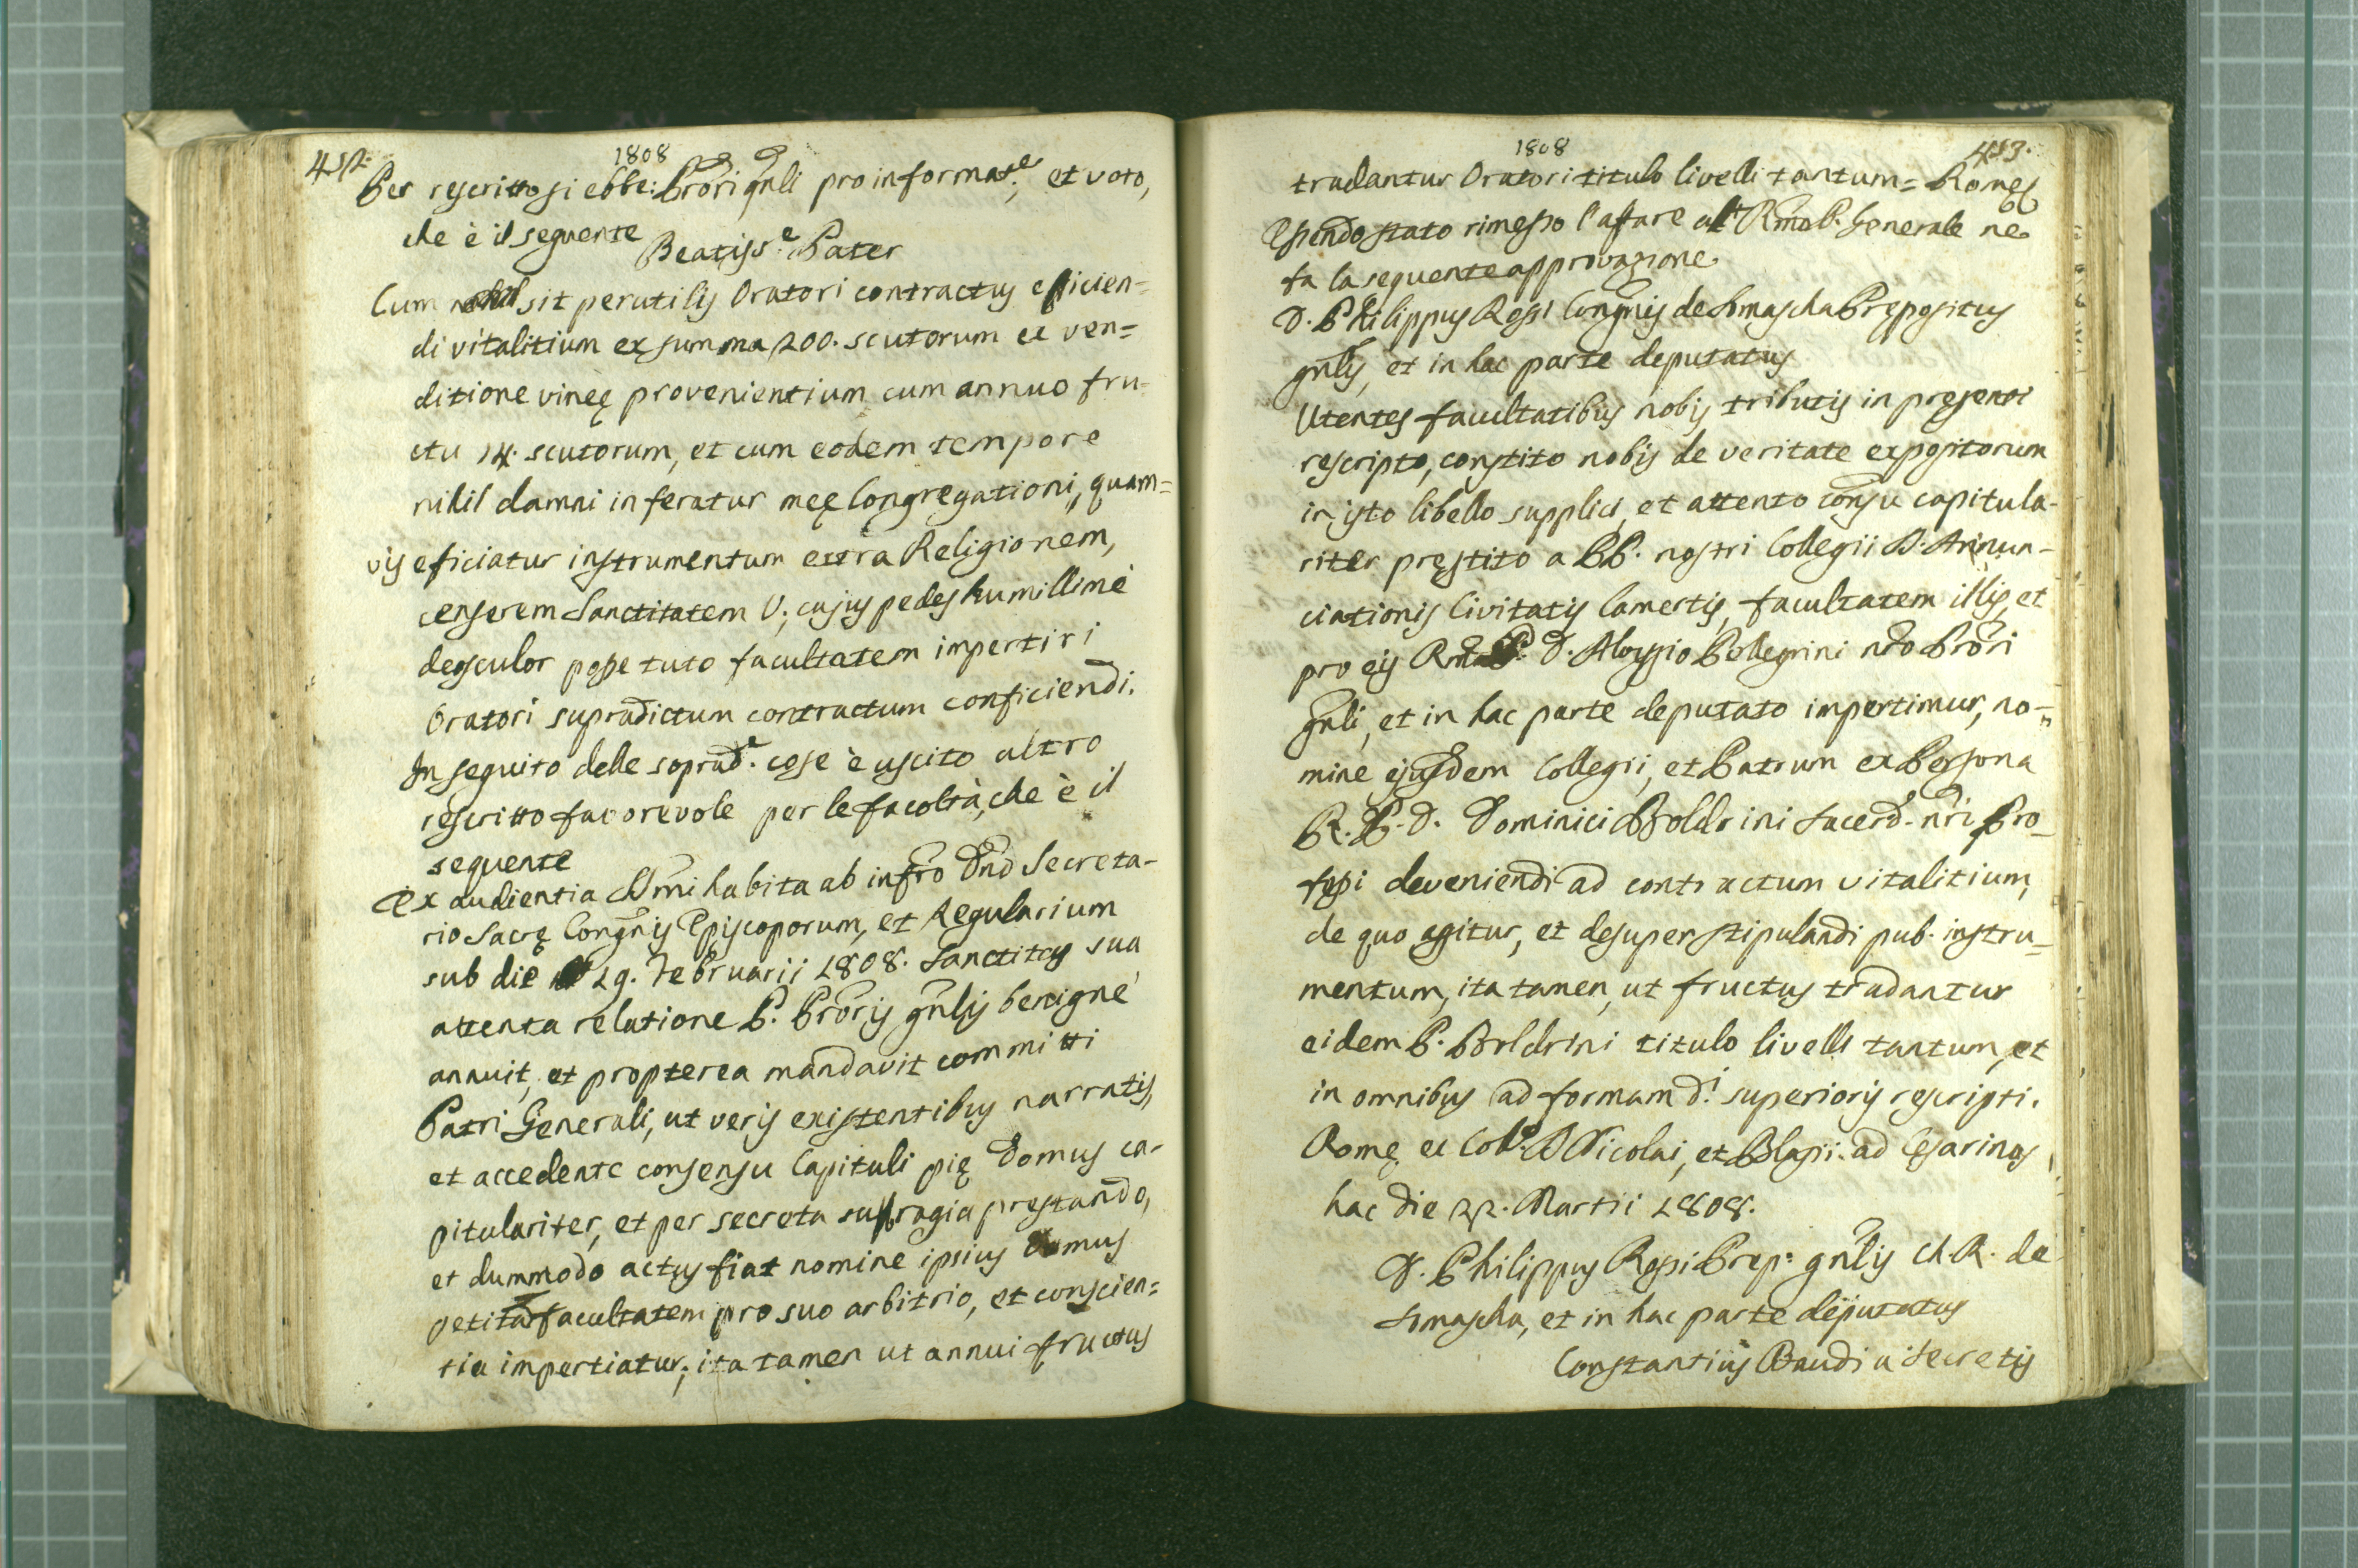 452.
1808
Per rescritto si ebbe: Prōri gnli pro informat.e, et voto,
che è il seguente
Beatiss.e Pater
Cum sit perutilis Oratori contractus efficien=
di vitalitium ex summa 200. scutorum ex ven=
ditione vineę provenientium cum annuo fru=
ctu 14. scutorum, et cum eodem tempore
nihil damni inferatur meę Congregationi, quam=
vis eficiatur instrumentum extra Religionem,
censerem Sanctitatem V., cujus pedes humillimè
deosculor posse tuto facultatem impertiri
Oratori supradictum contractum conficiendi.
In seguito delle soprad.e cose è uscito altro
rescritto favorevole per le facoltà, che è il
seguente
Ex audientia SSmi habita ab infro Dnō Secreta-
rio Sacrę Congnis Episcoporum, et Regularium
sub die 19. Februarii 1808. Sanctitas sua
attenta relatione P. Prōris gnlis benignè
annuit, et propterea mandavit committi
Patri Generali, ut veris existentibus narratis,
et accedente consensu Capituli pię Domus ca-
pitulariter, et per secreta suffragia prestando,
et dummodo actus fiat nomine ipsius Domus
petitam facultatem pro suo arbitrio, et conscien=
tia impertiatur; ita tamen ut annui fructus
1808
453.
tradantur Oratori titulo livelli tantum = Romę
Essendo stato rimesso l'affare al Rmo P. Generale ne
fa la sequente approvazione.
D. Philippus Rossi Congnis de Somascha Prępositus
gnlis, et in hac parte deputatus
Utentes facultatibus nobis tributis in presenti
rescripto, constito nobis de veritate expositorum
in isto libello supplici, et attento consu capitula-
riter pręstito a PP. nostri Collegii S. Annun-
ciationis Civitatis Camertis, facultatem illis, et
pro eis Rmo P. D. Aloysio Pellegrini nrō Prōri
gnli, et in hac parte deputato impertimur, no-
mine ejusdem Collegii, et Patrum ex Persona
R. P. D. Dominici Boldrini Sacerd. nrī Pro-
fessi deveniendi ad contractum vitalitium,
de quo agitur, et desuper stipulandi pub. instru-
mentum, ita tamen, ut fructus tradantur
eidem P. Boldrini titulo livelli tantum, et
in omnibus ad formam d.i superioris rescripti.
Romę ex Coll.o SS Nicolai, et Blasii ad Cesarinos
hac die 22. Martii 1808.
D. Philippus Rossi Prep.s gnlis C. R. de
Somascha, et in hac parte deputatus
Constantius Baudi a Secretis